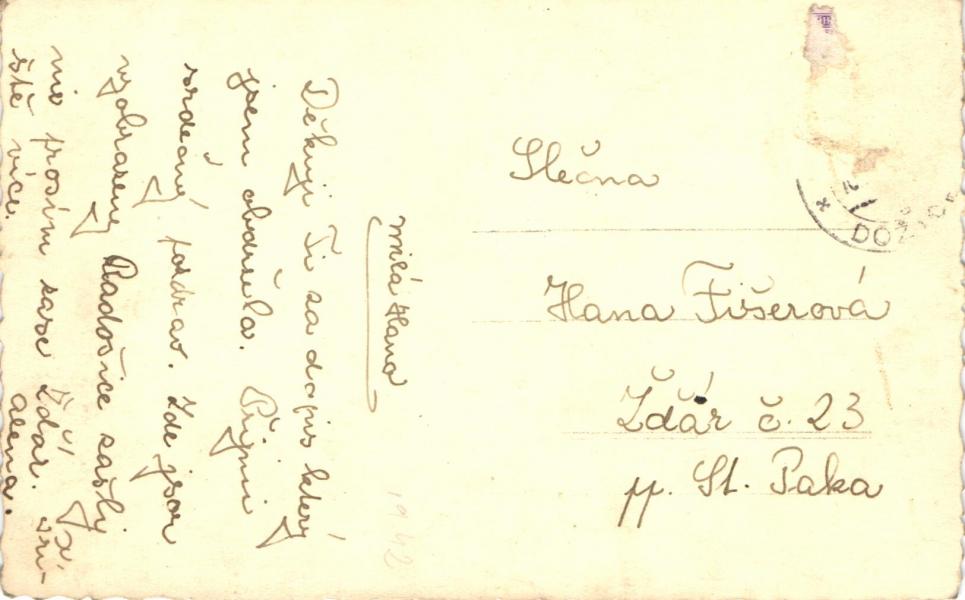 Milá Hano
Děkuji Ti za dopis který
jsem obdržela. Přijmi
srdečný pozdrav. Zde jsou
vyobrazeny Radošice zašly
mě prosím zase Žďár. Při-
ště více. Alena.
Slečna
Hana Fišerová
Žďár č. 23
pp. St. Paka
1942